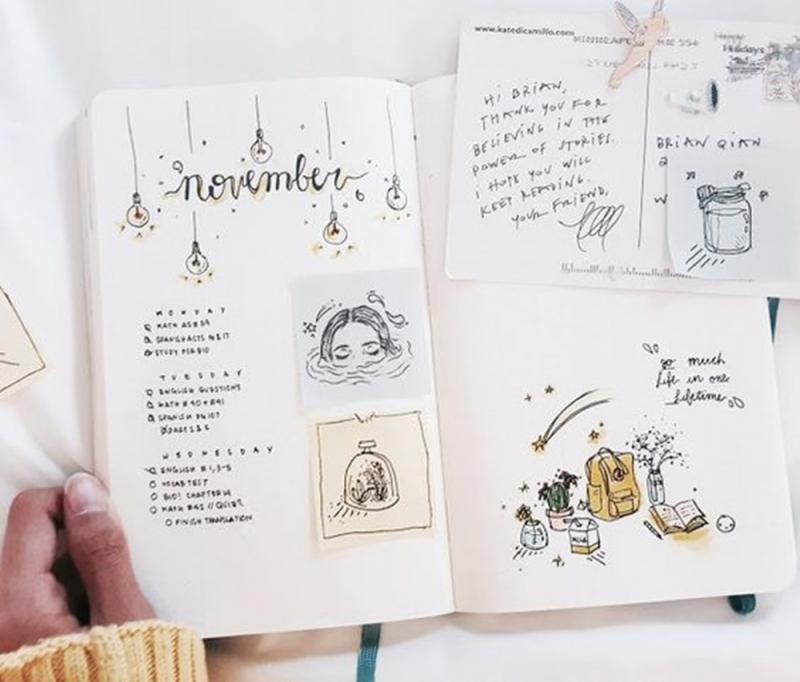 november
MONDAY
MATH
SPANISH
STUDY FOR BIO
TUESDAY
ENGLISH QUESTIONS
MATH #40 + #41
SPANISH PG 107
WEDNESDAY
ENGLISH #1,3-5
VOCAB TEST
BIO! CHAPTER 14
MATH #42 // QUIZ?
FINISH TRANSLATION
www.katedicamillo.com
Happy
Holidays
HI BRIAN,
THANK YOU FOR
BELIEVING IN THE
POWER OF STORIES.
I HOPE YOU WILL
KEEP READING.
YOUR FRIEND,
BRIAN QIAN
so much
life in one
lifetime
MILK